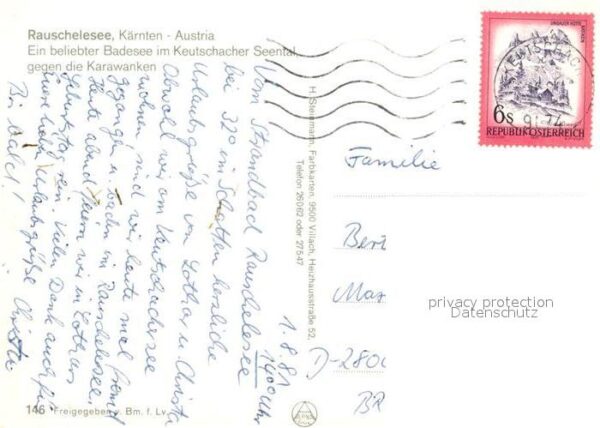 Rauschelesee, Kärnten - Austria
Ein beliebter Badesee im Keutschacher Seental,
gegen die Karawanken
Vom Strandbad Rauschelesee
bei 32° im Schatten herzliche
Urlaubsgrüße von Lothar u. Christa
Obwohl wir am Keutschachsee
wohnen sind wir heute mal fremd
gegangen u. baden im Rauschelesee.
Heute abend feiern wir in Lothars
Geburtstag rein. Vielen Dank auch für
eure Urlaubsgrüße Christa
Bis bald!
1.8.81
1400 Uhr
H. Stermann, Farbkarten, 9500 Villach, Heizhausstraße 52,
Telefon 26062 oder 27547
LINDAUER HÜTTE
6s
REPUBLIK ÖSTERREICH
Familie
Bert
Max
D-2800
BR
privacy protection
Datenschutz
146 Freigegeben v. Bm. f. Lv.